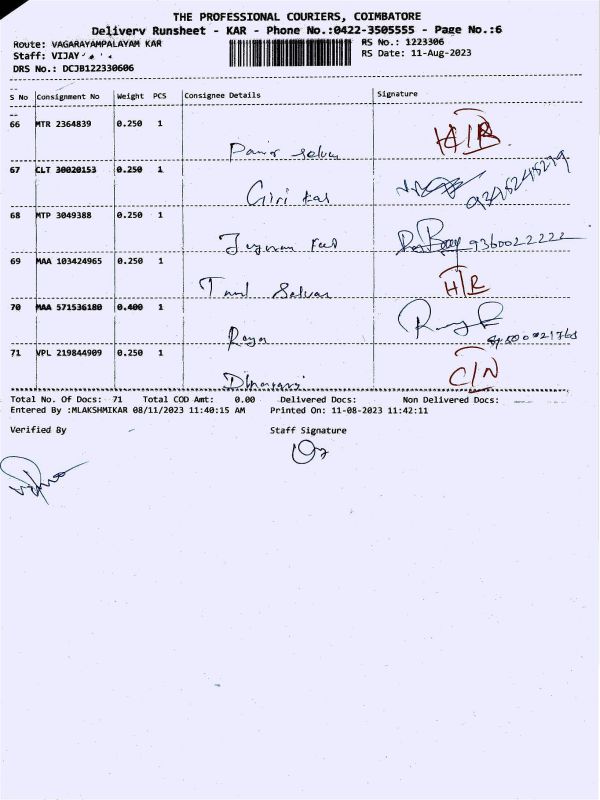 THE PROFESSIONAL COURIERS, COIMBATORE
Delivery Runsheet - KAR - Phone No.:0422-3505555 - Page No.:6
Route: VAGARAYAMPALAYAM KAR
RS No.: 1223306
Staff: VIJAY
RS Date: 11-Aug-2023
DRS No.: DCJB122330606
S No Consignment No Weight PCS Consignee Details Signature
66 MTR 2364839 0.250 1
H/R
Selvan
67 CLT 30020153 0.250 1
Giri
68 MTP 3049388 0.250 1
9360022222
69 MAA 103424965 0.250 1
H/R
Selvan
70 MAA 571536180 0.400 1
Raya
71 VPL 219844909 0.250 1
C/N
Total No. Of Docs: 71 Total COD Amt: 0.00 Delivered Docs: Non Delivered Docs:
Entered By :MLAKSHMIKAR 08/11/2023 11:40:15 AM Printed On: 11-08-2023 11:42:11
Verified By Staff Signature